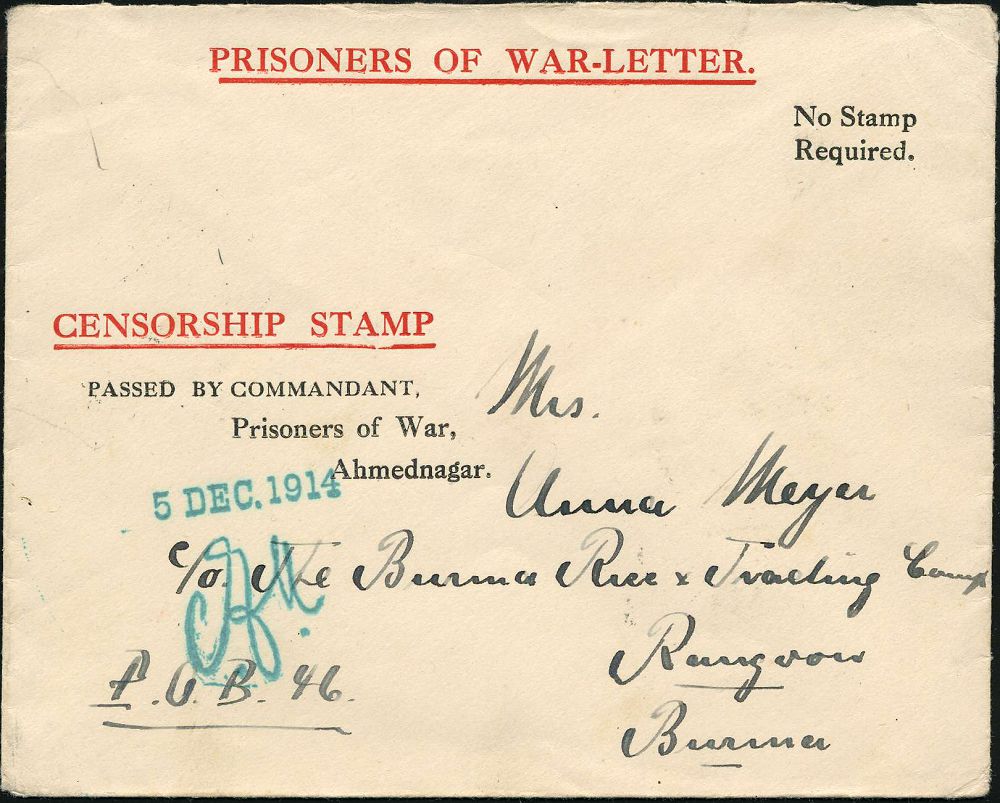 PRISONERS OF WAR-LETTER.
No Stamp
Required.
CENSORSHIP STAMP
PASSED BY COMMANDANT,
Prisoners of War,
Ahmednagar.
5 DEC. 1914
Mrs.
Anna Meyer
c/o. The Burma Rice & Trading Comp
Rangoon
Burma
P.O.B. 46.